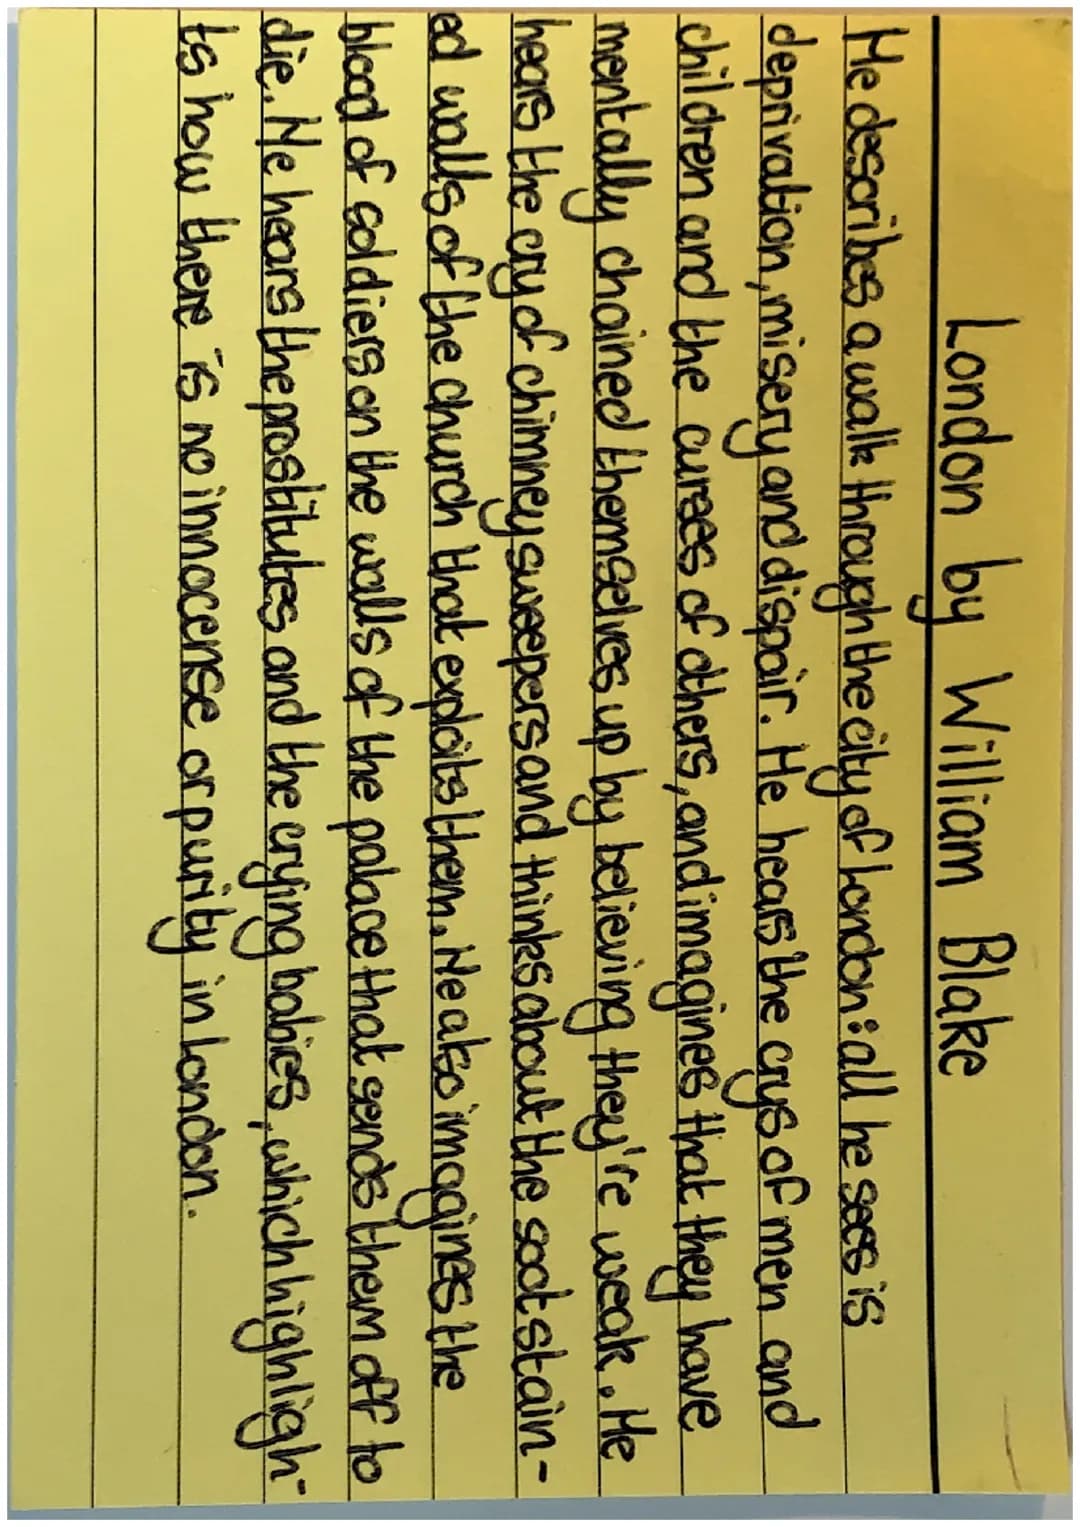 London by William Blake
He describes a walk through the city of London: all he sees is
deprivation, misery and dispair. He hears the crys of men and
children and the curses of others, and imagines that they have
mentally chained themselves up by believing they're weak. He
hears the cry of chimney sweepers and thinks about the soot stain-
ed walls of the church that exploits them. He also imagines the
blood of soldiers on the walls of the palace that sends them off to
die. He hears the prostitutes and the crying babies, which highligh-
ts how there is no innocense or purity in London.